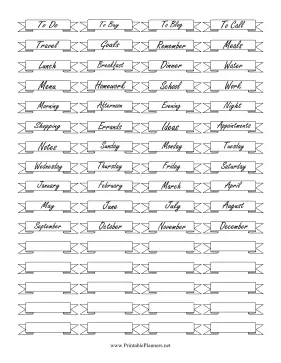 To Do To Buy To Blog To Call
Travel Goals Remember Meals
Lunch Breakfast Dinner Water
Menu Homework School Work
Morning Afternoon Evening Night
Shopping Errands Ideas Appointments
Notes Sunday Monday Tuesday
Wednesday Thursday Friday Saturday
January February March April
May June July August
September October November December
www.PrintablePlanners.net